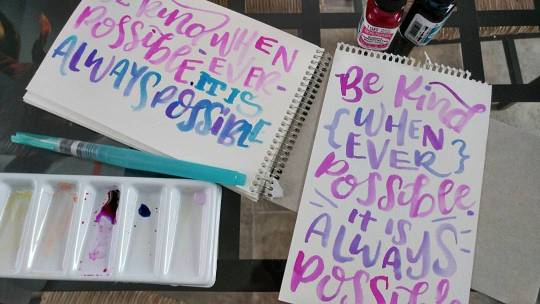 Be Kind WHEN
Possible-EVER-
IT IS
ALWAYS POSSIBLE
Be Kind
{WHEN
EVER}
Possible.
it is
ALWAYS
Possible